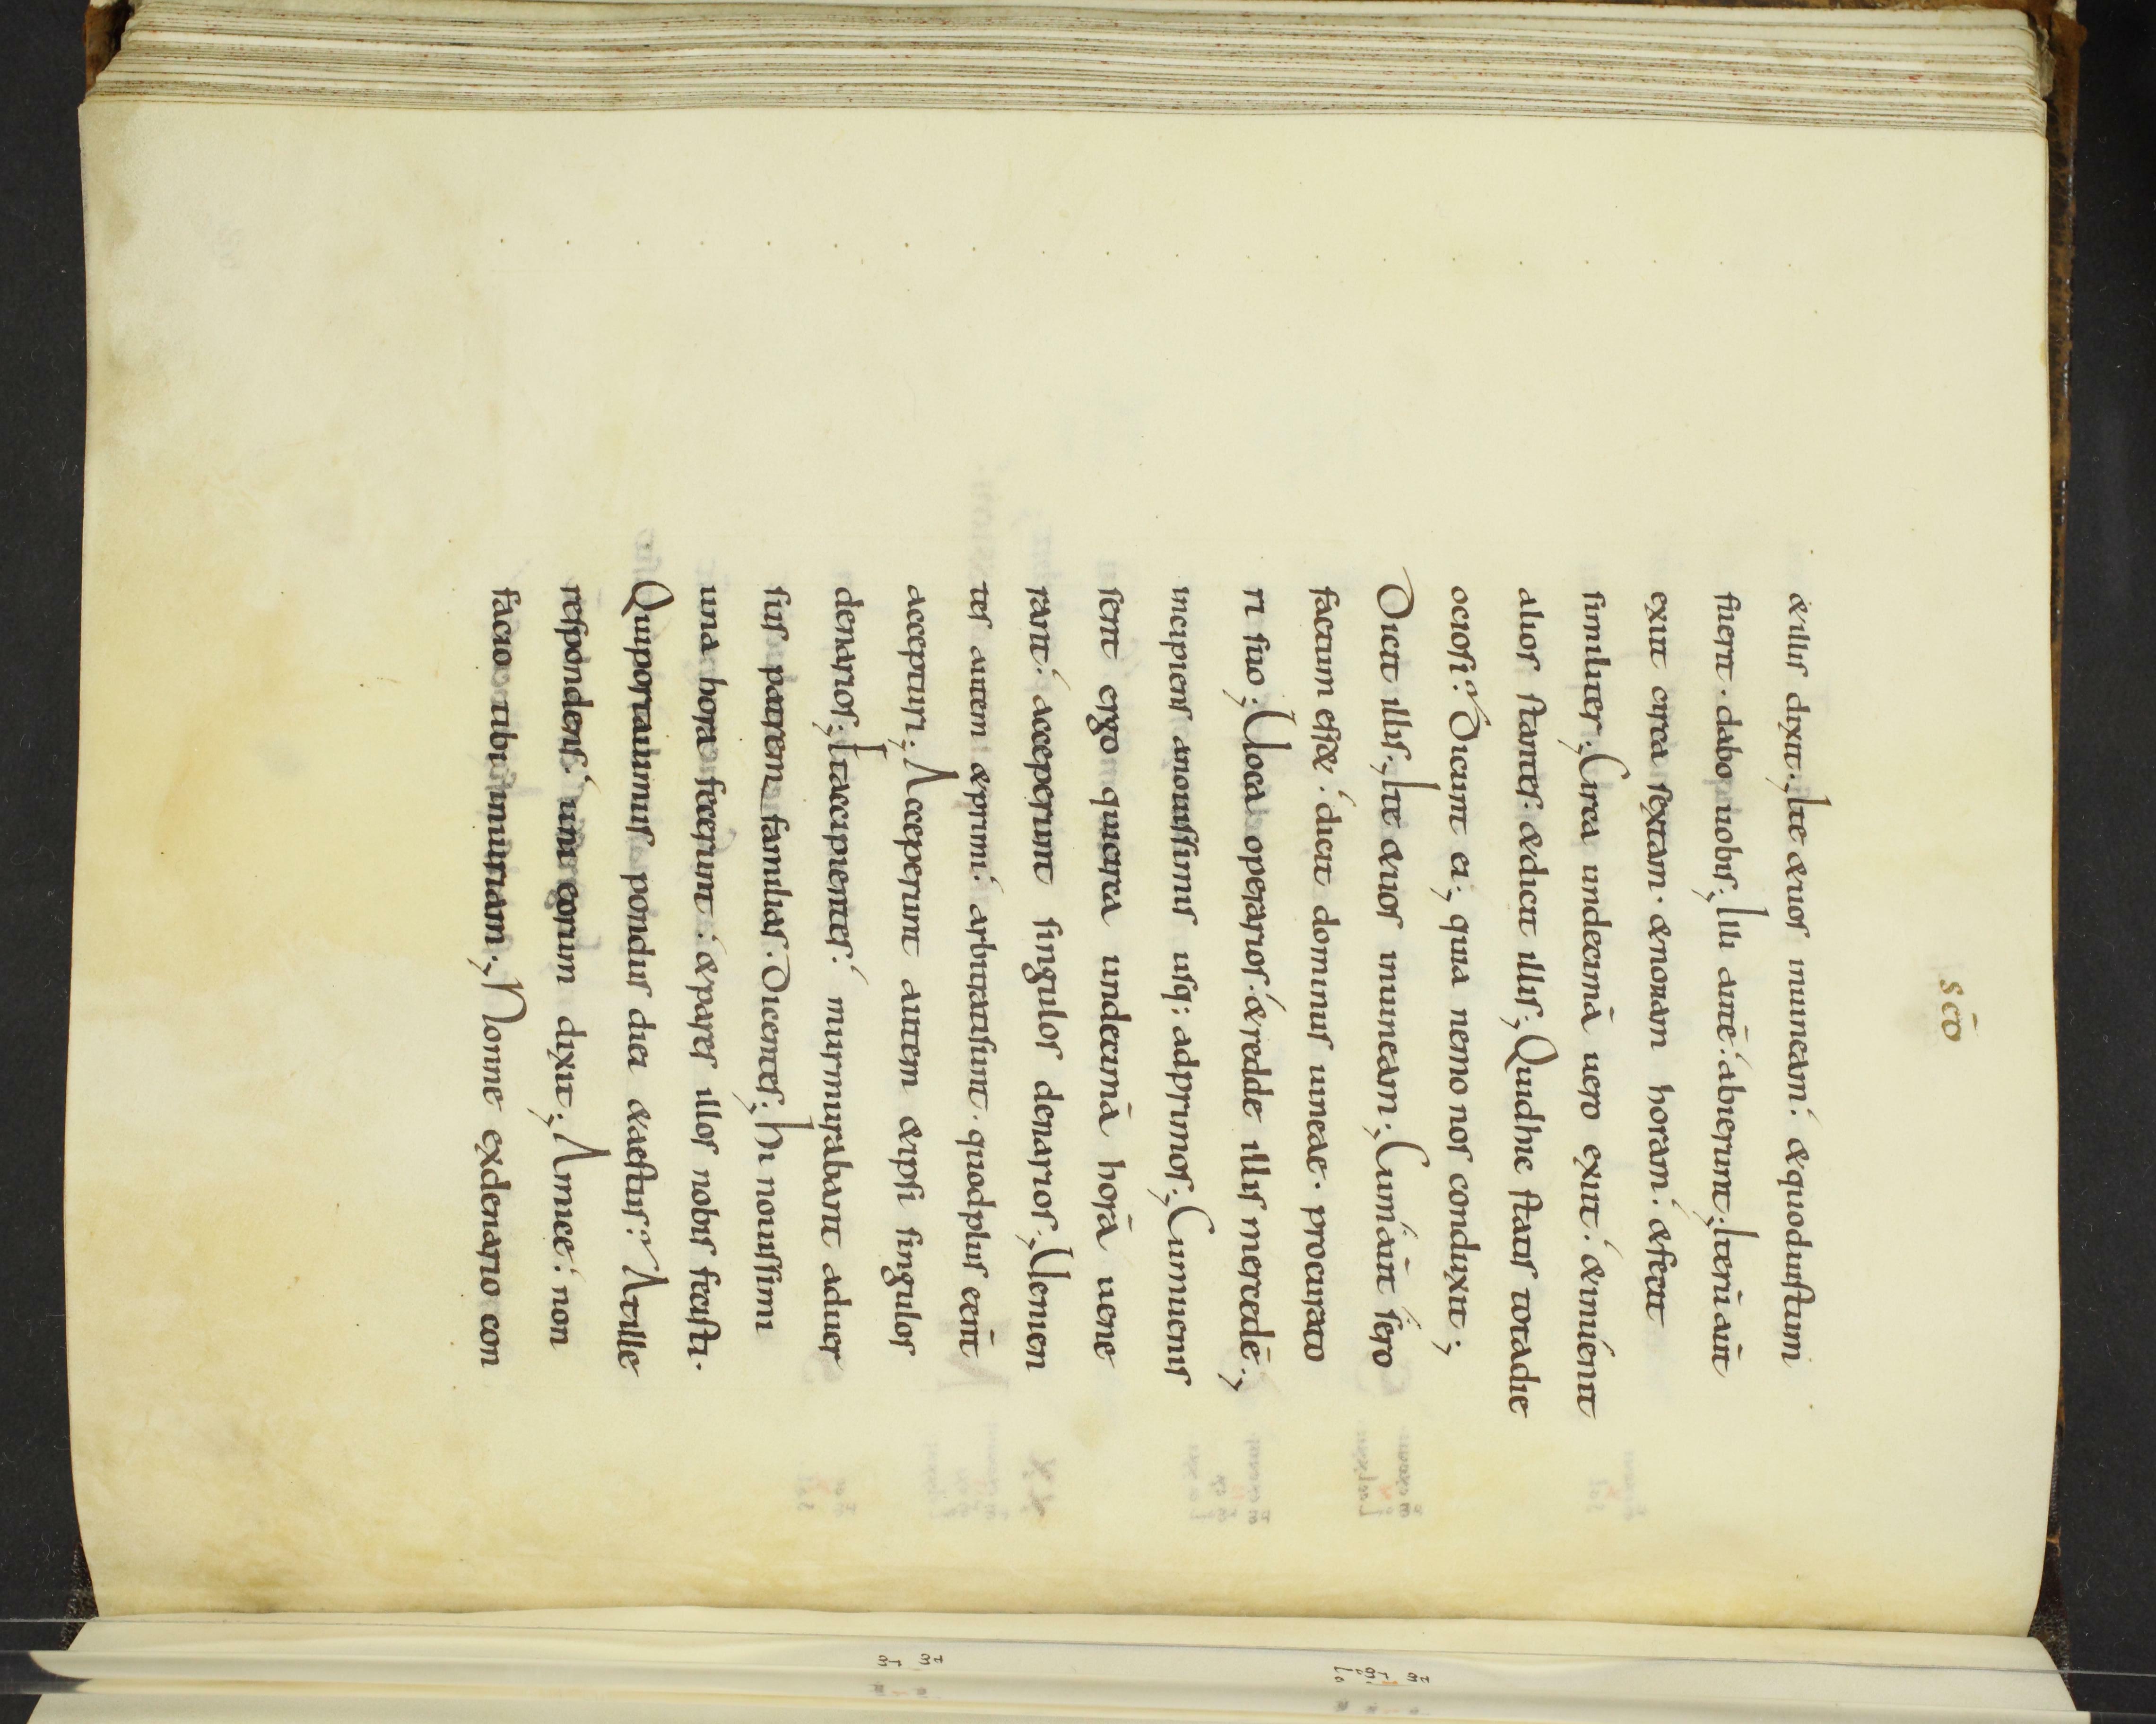 SCD̄
& illis dixit. Ite & uos in uineam: & quod iustum
fuerit. dabo uobis; Illi autē: abierunt; Iterū aūt
exiit circa sextam. & nonam horam: & fecit
similiter; Circa undecimā uero exiit: & inuenit
alios stantes. & dicit illis; Quid hic statis tota die
ociosi? Dicunt ei; quia nemo nos conduxit;
Dicit illis. Ite & uos in uineam; Cum aūt sero
factum ess&: dicit dominus uineae. procurato
ri suo; Uoca operarios. & redde illis mercedē;
incipiens a nouissimis usq; ad primos; Cum uenis
sent ergo qui circa undecimā horā uene
rant: acceperunt singulos denarios; Uenien
tes autem & primi: arbitrati sunt. quod plus eēnt
accepturi; Acceperunt autem & ipsi singulos
denarios; Et accipientes: murmurabant aduer
sus patrem familias. Dicentes; Hi nouissimi
una hora fecerunt: & pares illos nobis fecisti.
Qui portauimus pondus diei & aestus? At ille
respondens: uni eorum dixit; Amice: non
facio tibi iniuriam; Nonne ex denario con